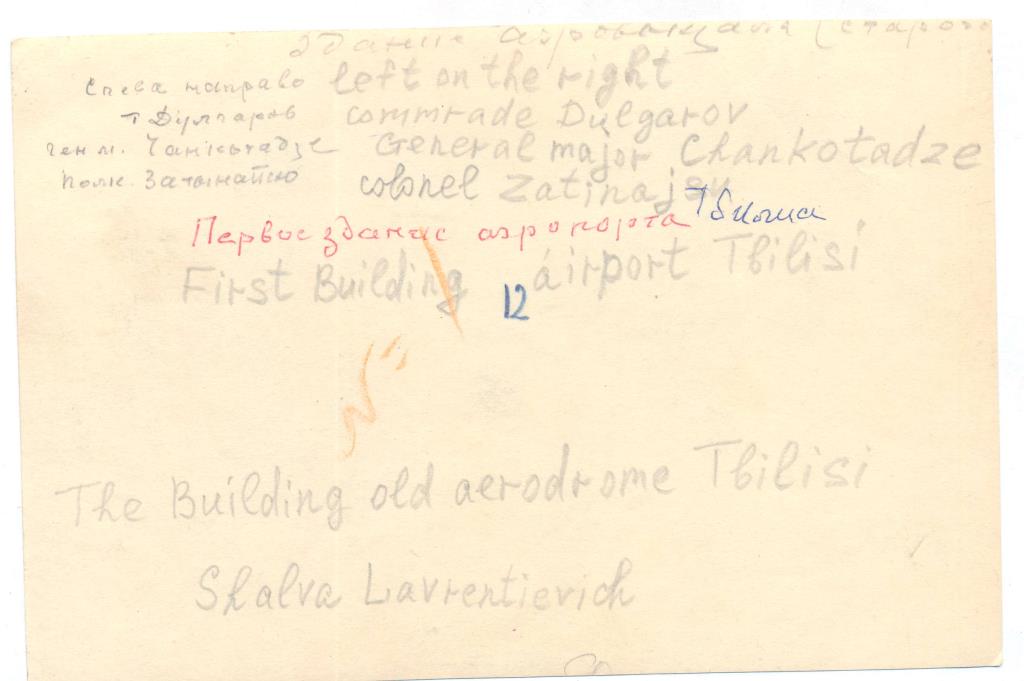 здание аэровокзала (старого
Слева направо left on the right
т Дулгаров commrade Dulgarov
ген м. Чанкотадзе General major Chankotadze
полк. colonel
Первое здание аэропорта
First Building airport Tbilisi
12
N"
The Building old aerodrome Tbilisi
Shalva Lavrentievich